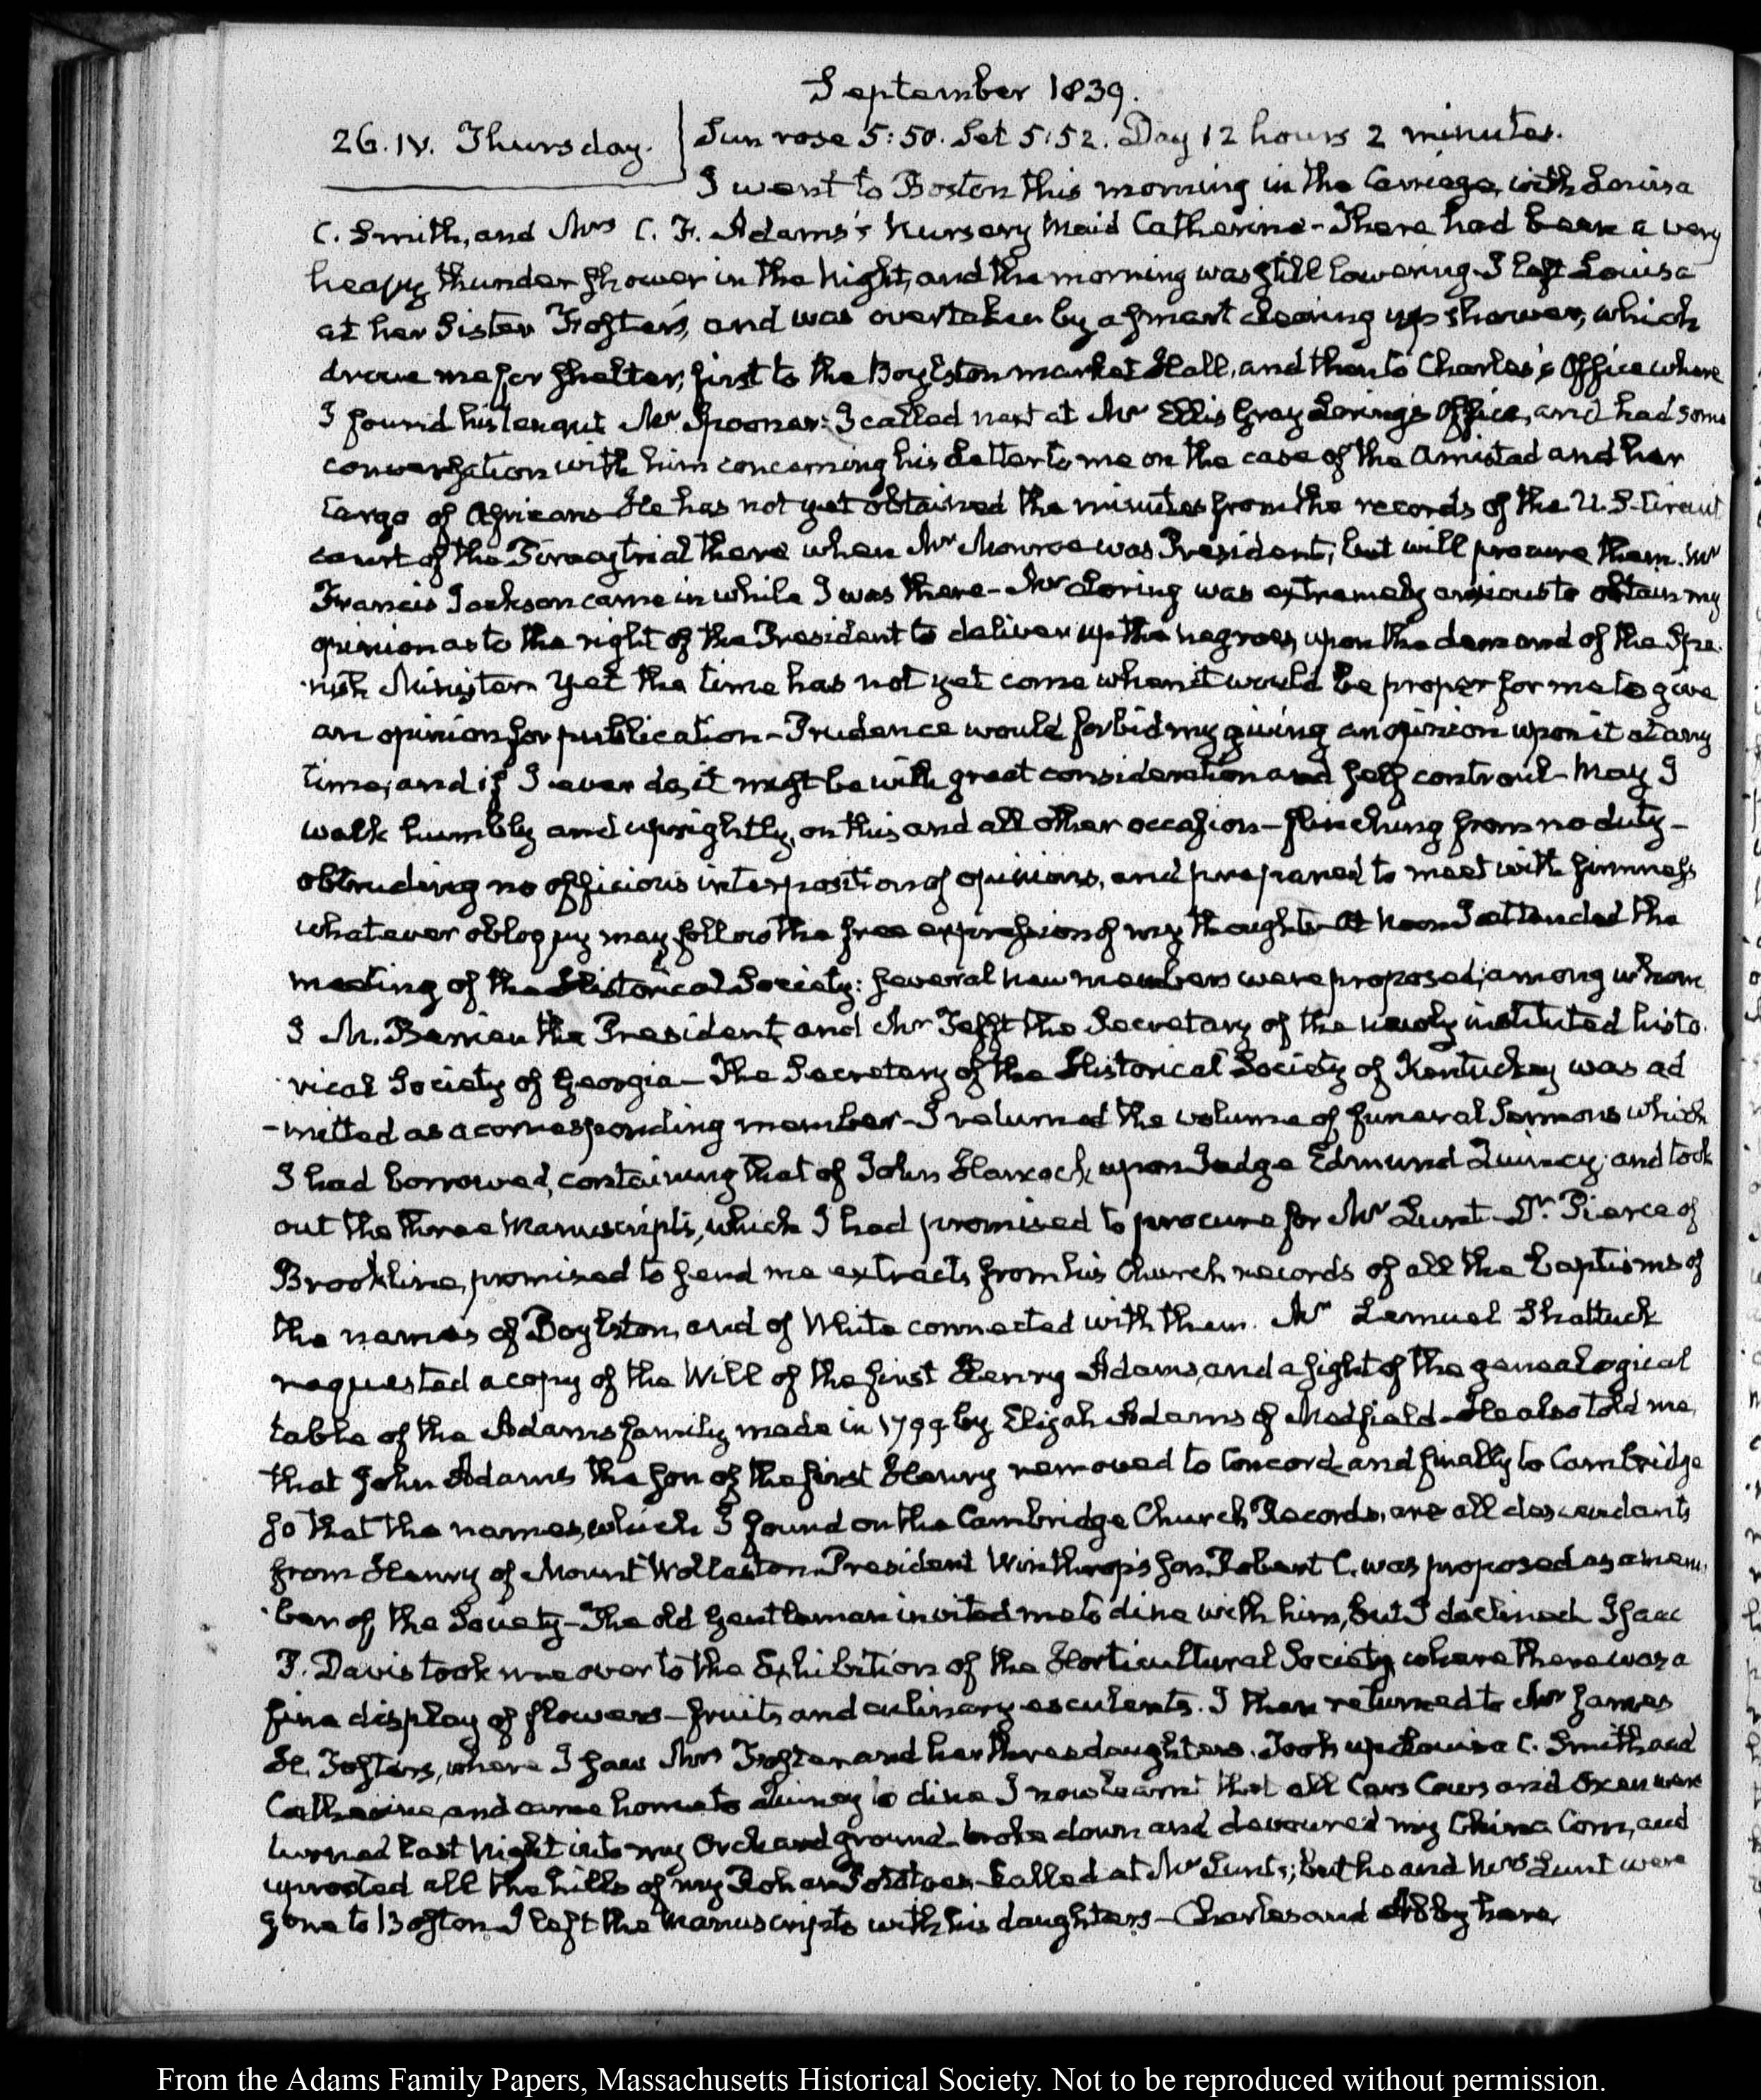 September 1839.
26. IV. Thursday. Sun rose 5:50. Set 5:52. Day 12 hours 2 minutes.
I went to Boston this morning in the Carriage, with Louisa
C. Smith, and Mrs C. F. Adams's Nursery Maid Catherine - There had been a very
heavy thunder shower in the night, and the morning was still lowering. I left Louisa
at her Sister Foster's, and was overtaken by a smart clearing up shower, which
drove me for shelter, first to the Boylston market Hall, and then to Charles's Office where
I found his tenant Mr Spooner: I called next at Mr Ellis Gray Loring's Office, and had some
conversation with him concerning his Letter to me on the case of the Amistad and her
Cargo of Africans He has not yet obtained the minutes from the records of the U.S. Circuit
court of the Piracy trial there when Mr Monroe was President; but will procure them. Mr
Francis Jackson came in while I was there - Mr Loring was extremely anxious to obtain my
opinion as to the right of the President to deliver up the negroes, upon the demand of the Spa-
-nish Minister Yet the time has not yet come when it would be proper for me to give
an opinion for publication - Prudence would forbid my giving an opinion upon it at any
time; and if I ever do, it must be with great consideration and self controul - May I
walk humbly and uprightly, on this and all other occasion - flinching from no duty -
obtruding no officious interposition of opinions, and prepared to meet with firmness
whatever obloquy may follow the free expression of my thoughts - At Noon I attended the
meeting of the Historical Society: several new members were proposed; among whom
J M. Berrien the President, and Mr Tefft the Secretary of the newly instituted histo-
-rical Society of Georgia - The Secretary of the Historical Society of Kentucky was ad
-mitted as a corresponding member - I returned the volume of funeral Sermons which
I had borrowed, containing that of John Hancock, upon Judge Edmund Quincy; and took
out the three Manuscripts, which I had promised to procure for Mr Lunt - Dr. Pierce of
Brookline, promised to send me extracts from his Church records of all the baptisms of
the names of Boylston, and of White connected with them. Mr Lemuel Shattuck
requested a copy of the Will of the first Henry Adams, and a sight of the genealogical
table of the Adams family made in 1799 by Elijah Adams of Medfield - He also told me,
that John Adams the son of the first Henry removed to Concord, and finally to Cambridge
so that the names, which I found on the Cambridge Church Records, are all descendants
from Henry of Mount Wollaston. President Winthrop's son Robert C. was proposed as a mem-
-ber of the Society - The old Gentleman invited me to dine with him, but I declined Isaac
P. Davis took me over to the Exhibition of the Horticultural Society, where there was a
fine display of flowers - fruits and culinary esculents. I then returned to Mr James
H. Foster's, where I saw Mrs Foster and her three daughters. Took up Louisa C. Smith and
Catherine, and came home to Quincy to dine I now learnt that all Cows and Oxen were
turned last Night into my Orchard ground - broke down and devoured my China Corn, and
uprooted all the hills of my Rohan Potatoes. Called at Mr Lunt's; but he and Mrs Lunt were
gone to Boston I left the Manuscripts with his daughters - Charles and Abby here
From the Adams Family Papers, Massachusetts Historical Society. Not to be reproduced without permission.